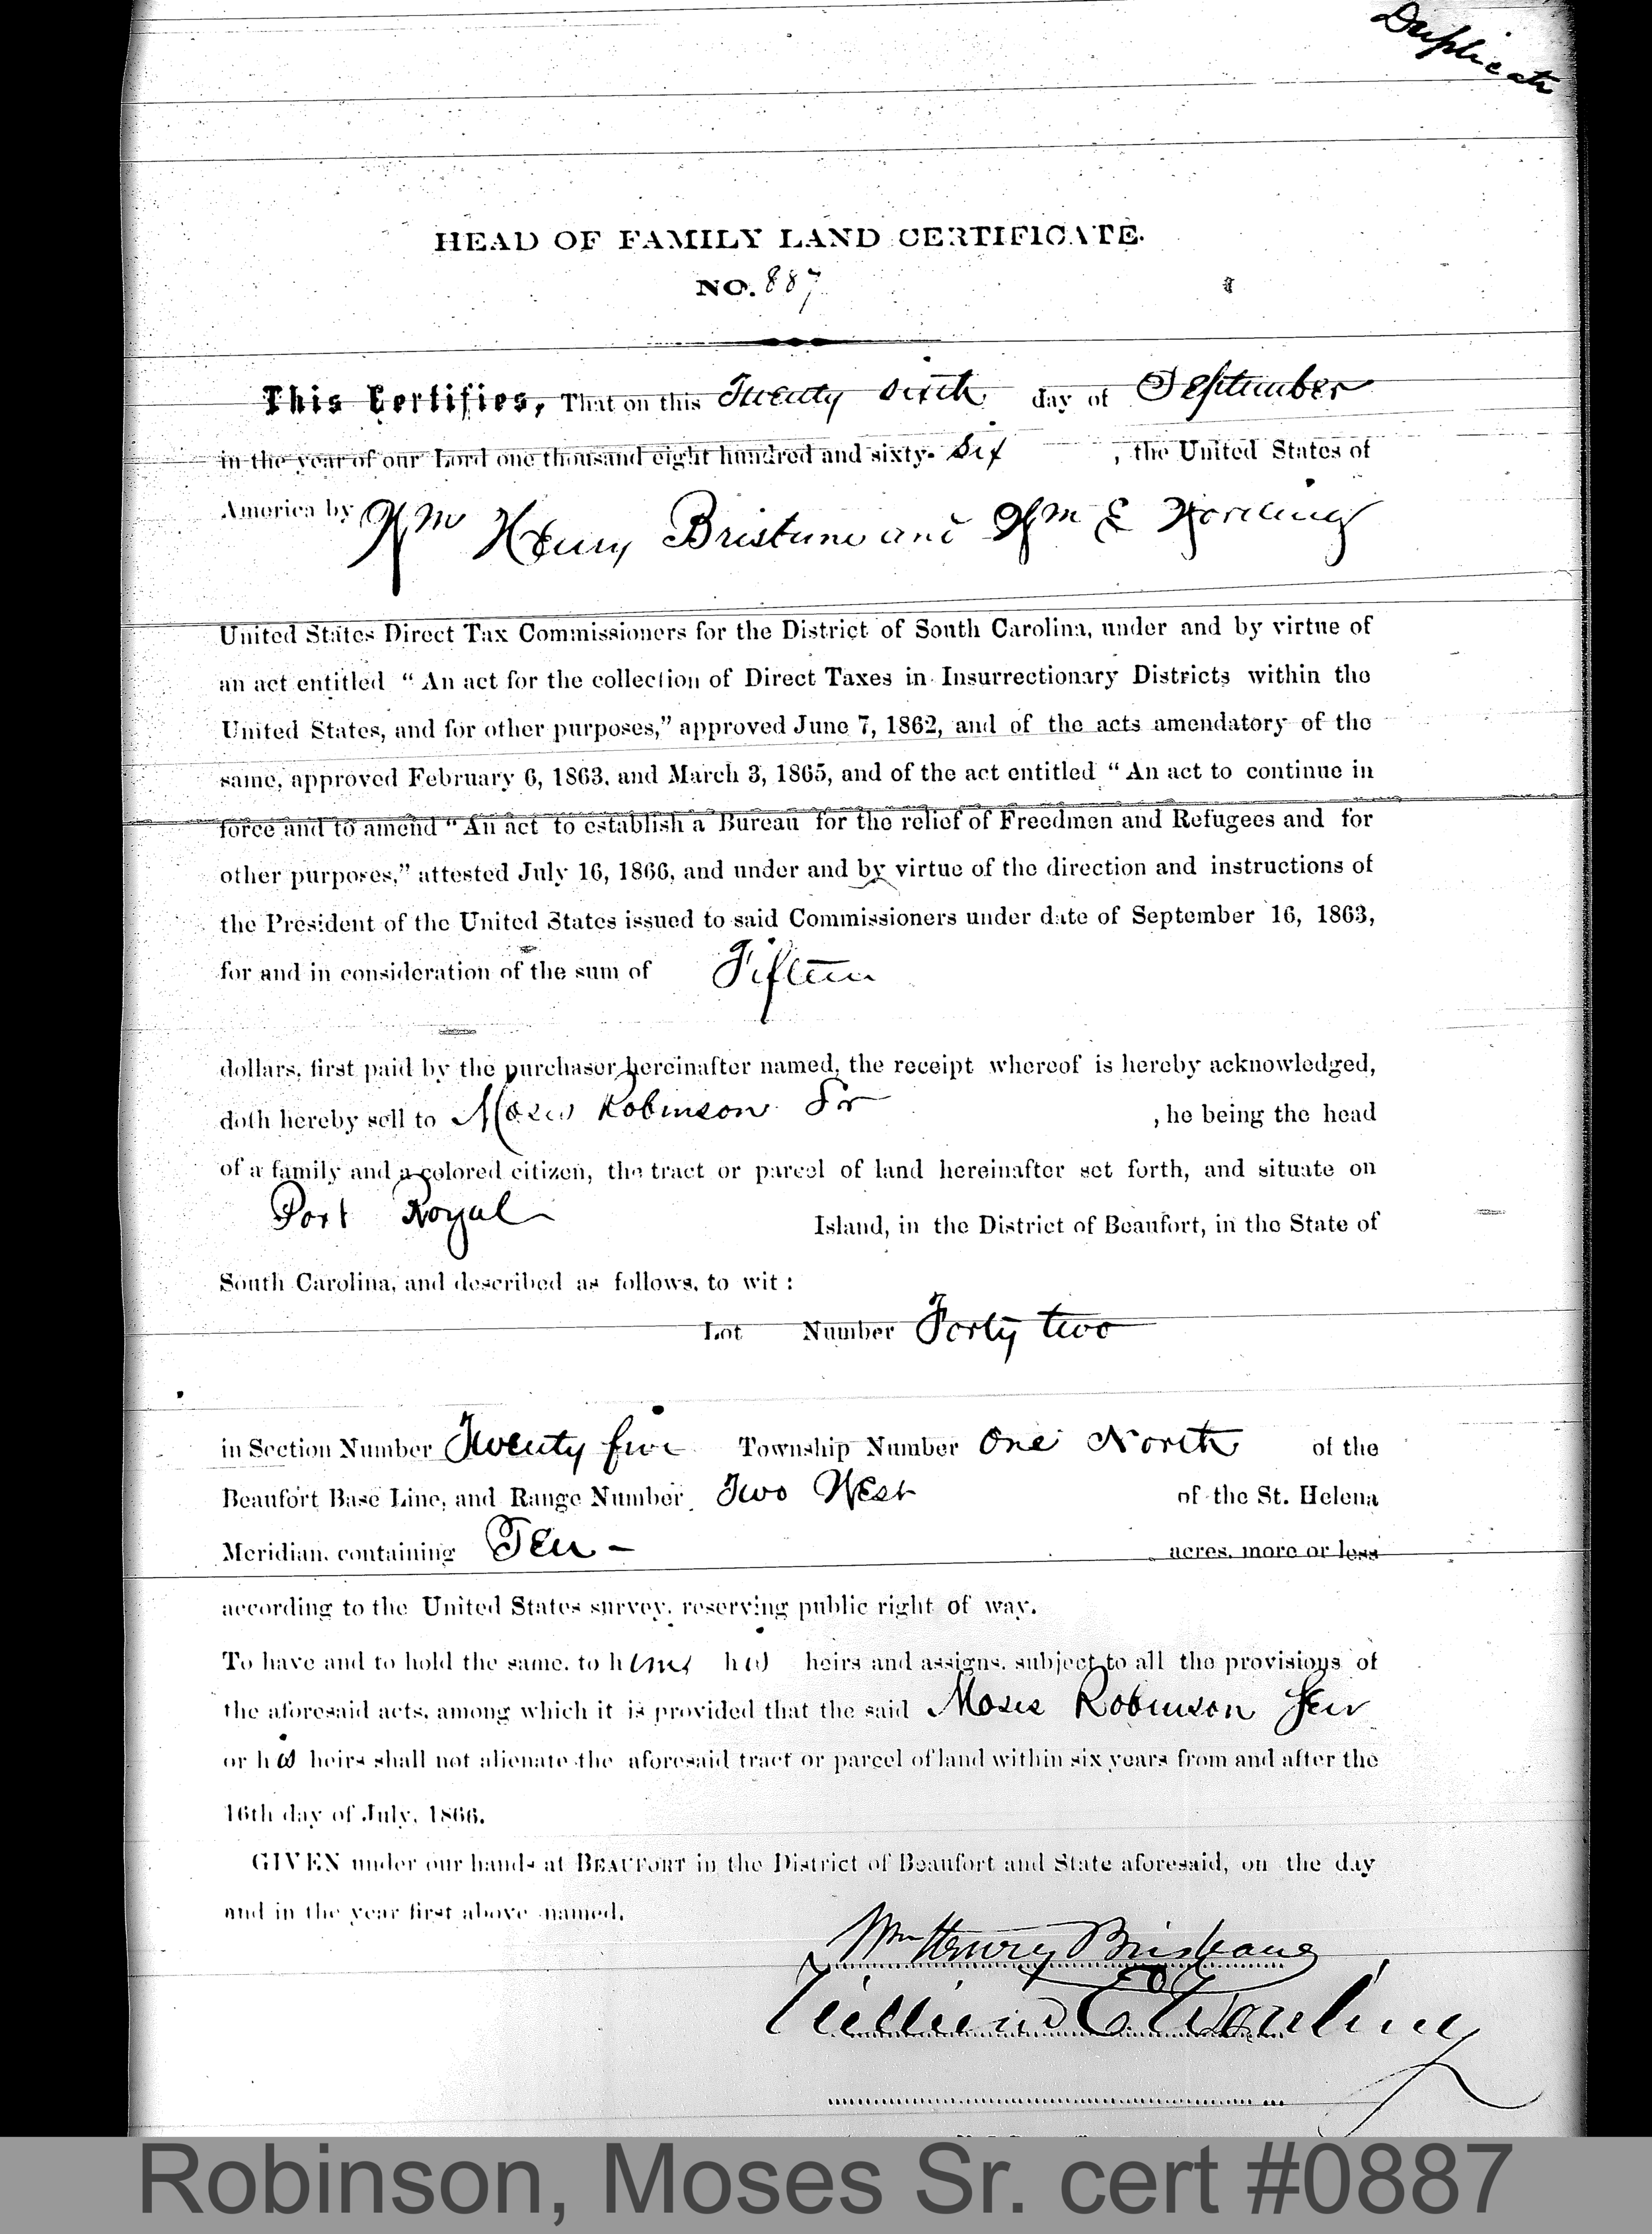 Duplicate
HEAD OF FAMILY LAND CERTIFICATE.
NO. 887
This Certifies, That on this Twenty sixth day of September
in the year of our Lord one thousand eight hundred and sixty-six , the United States of
America by Wm Henry Brisbane and Wm E Wording
United States Direct Tax Commissioners for the District of South Carolina, under and by virtue of
an act entitled "An act for the collection of Direct Taxes in Insurrectionary Districts within the
United States, and for other purposes," approved June 7, 1862, and of the acts amendatory of the
same, approved February 6, 1863, and March 3, 1865, and of the act entitled "An act to continue in
force and to amend "An act to establish a Bureau for the relief of Freedmen and Refugees and for
other purposes," attested July 16, 1866, and under and by virtue of the direction and instructions of
the President of the United States issued to said Commissioners under date of September 16, 1863,
for and in consideration of the sum of Fifteen
dollars, first paid by the purchaser hereinafter named, the receipt whereof is hereby acknowledged,
doth hereby sell to Moses Robinson Sr , he being the head
of a family and a colored citizen, the tract or parcel of land hereinafter set forth, and situate on
Port Royal Island, in the District of Beaufort, in the State of
South Carolina, and described as follows, to wit :
Lot Number Forty two
in Section Number Twenty five Township Number One North of the
Beaufort Base Line, and Range Number Two West of the St. Helena
Meridian, containing Ten - acres, more or less
according to the United States survey, reserving public right of way.
To have and to hold the same, to him his heirs and assigns, subject to all the provisions of
the aforesaid acts, among which it is provided that the said Moses Robinson Sen
or his heirs shall not alienate the aforesaid tract or parcel of land within six years from and after the
16th day of July, 1866.
GIVEN under our hands at BEAUFORT in the District of Beaufort and State aforesaid, on the day
and in the year first above named.
Wm Henry Brisbane
William E Wording
Robinson, Moses Sr. cert #0887